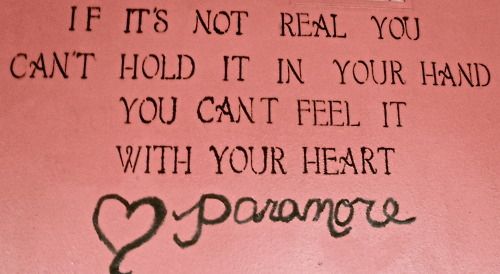 IF IT'S NOT REAL YOU
CAN'T HOLD IT IN YOUR HAND
YOU CANT FEEL IT
WITH YOUR HEART
paramore